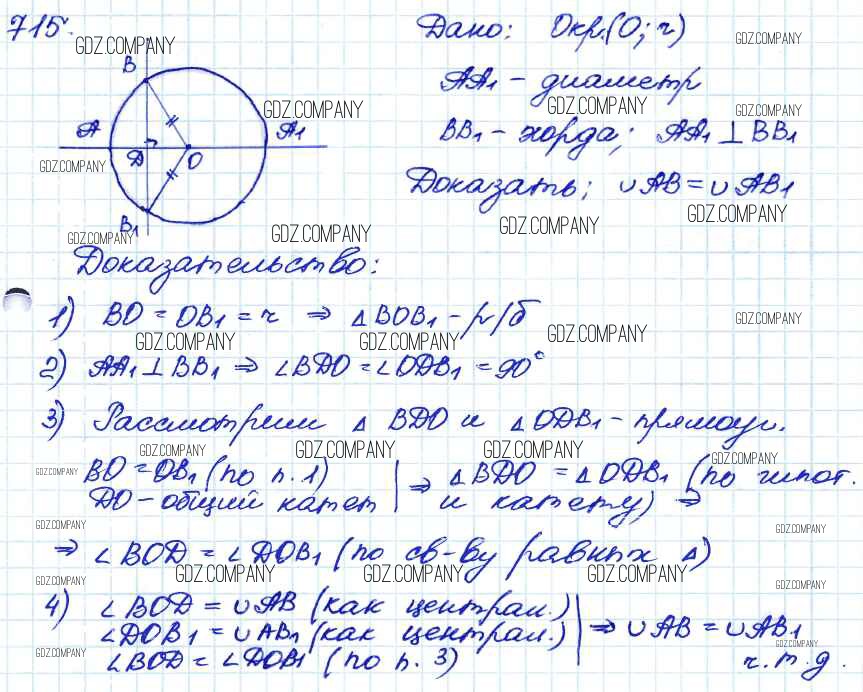 715.
GDZ.COMPANY
B
A
A₁
D
O
B₁
Дано: Окр.(O; r)
GDZ.COMPANY
AA₁ - диаметр
GDZ.COMPANY GDZ.COMPANY GDZ.COMPANY
BB₁ - хорда; AA₁ ⊥ BB₁
GDZ.COMPANY
Доказать; ∪AB = ∪AB₁
GDZ.COMPANY GDZ.COMPANY GDZ.COMPANY GDZ.COMPANY
Доказательство:
1) BO = OB₁ = r ⇒ △BOB₁ - р/б
GDZ.COMPANY
GDZ.COMPANY GDZ.COMPANY GDZ.COMPANY
2) AA₁ ⊥ BB₁ ⇒ ∠BDO = ∠ODB₁ = 90°
3) Рассмотрим △ BDO и △ODB₁ - прямоуг.
GDZ.COMPANY GDZ.COMPANY GDZ.COMPANY GDZ.COMPANY
GDZ.COMPANY BO = OB₁ (по п. 1) | ⇒ △BDO = △ODB₁ (по гипот.
DO - общий катет | и катету) ⇒
GDZ.COMPANY GDZ.COMPANY
⇒ ∠BOD = ∠DOB₁ (по св-ву равных △)
GDZ.COMPANY GDZ.COMPANY GDZ.COMPANY GDZ.COMPANY GDZ.COMPANY
4) ∠BOD = ∪AB (как централ.)
∠DOB₁ = ∪AB₁ (как централ.) | ⇒ ∪AB = ∪AB₁
GDZ.COMPANY ∠BOD = ∠DOB₁ (по п. 3) GDZ.COMPANY
ч.т.д.